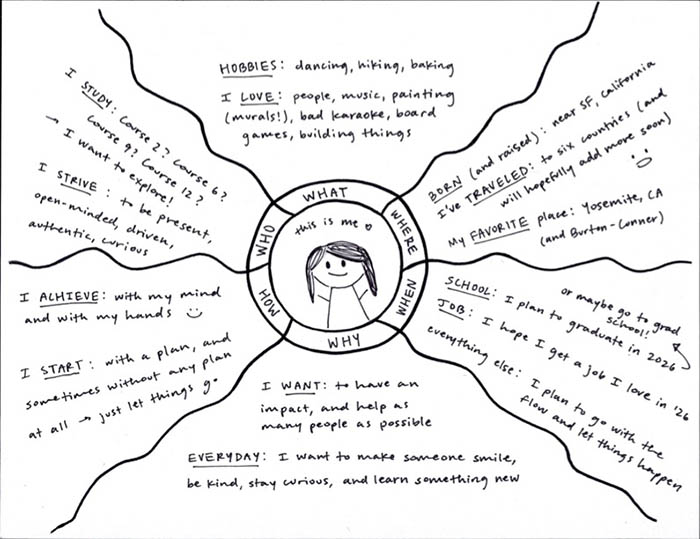 HOBBIES: dancing, hiking, baking
I LOVE: people, music, painting
(murals!), bad karaoke, board
games, building things
BORN (and raised): near SF, California
I've TRAVELED: to six countries (and
will hopefully add more soon)
My FAVORITE place: Yosemite, CA
(and Burton-Conner)
SCHOOL: I plan to graduate in 2026
or maybe go to grad
school!
JOB: I hope I get a job I love in '26
everything else: I plan to go with the
flow and let things happen
I WANT: to have an
impact, and help as
many people as possible
EVERYDAY: I want to make someone smile,
be kind, stay curious, and learn something new
I ACHIEVE: with my mind
and with my hands
I START: with a plan, and
sometimes without any plan
at all → just let things go
I STUDY: Course 2? Course 6?
Course 9? Course 12?
→ I want to explore!
I STRIVE: to be present,
open-minded, driven,
authentic, curious
WHAT
WHERE
WHEN
WHY
HOW
WHO
this is me